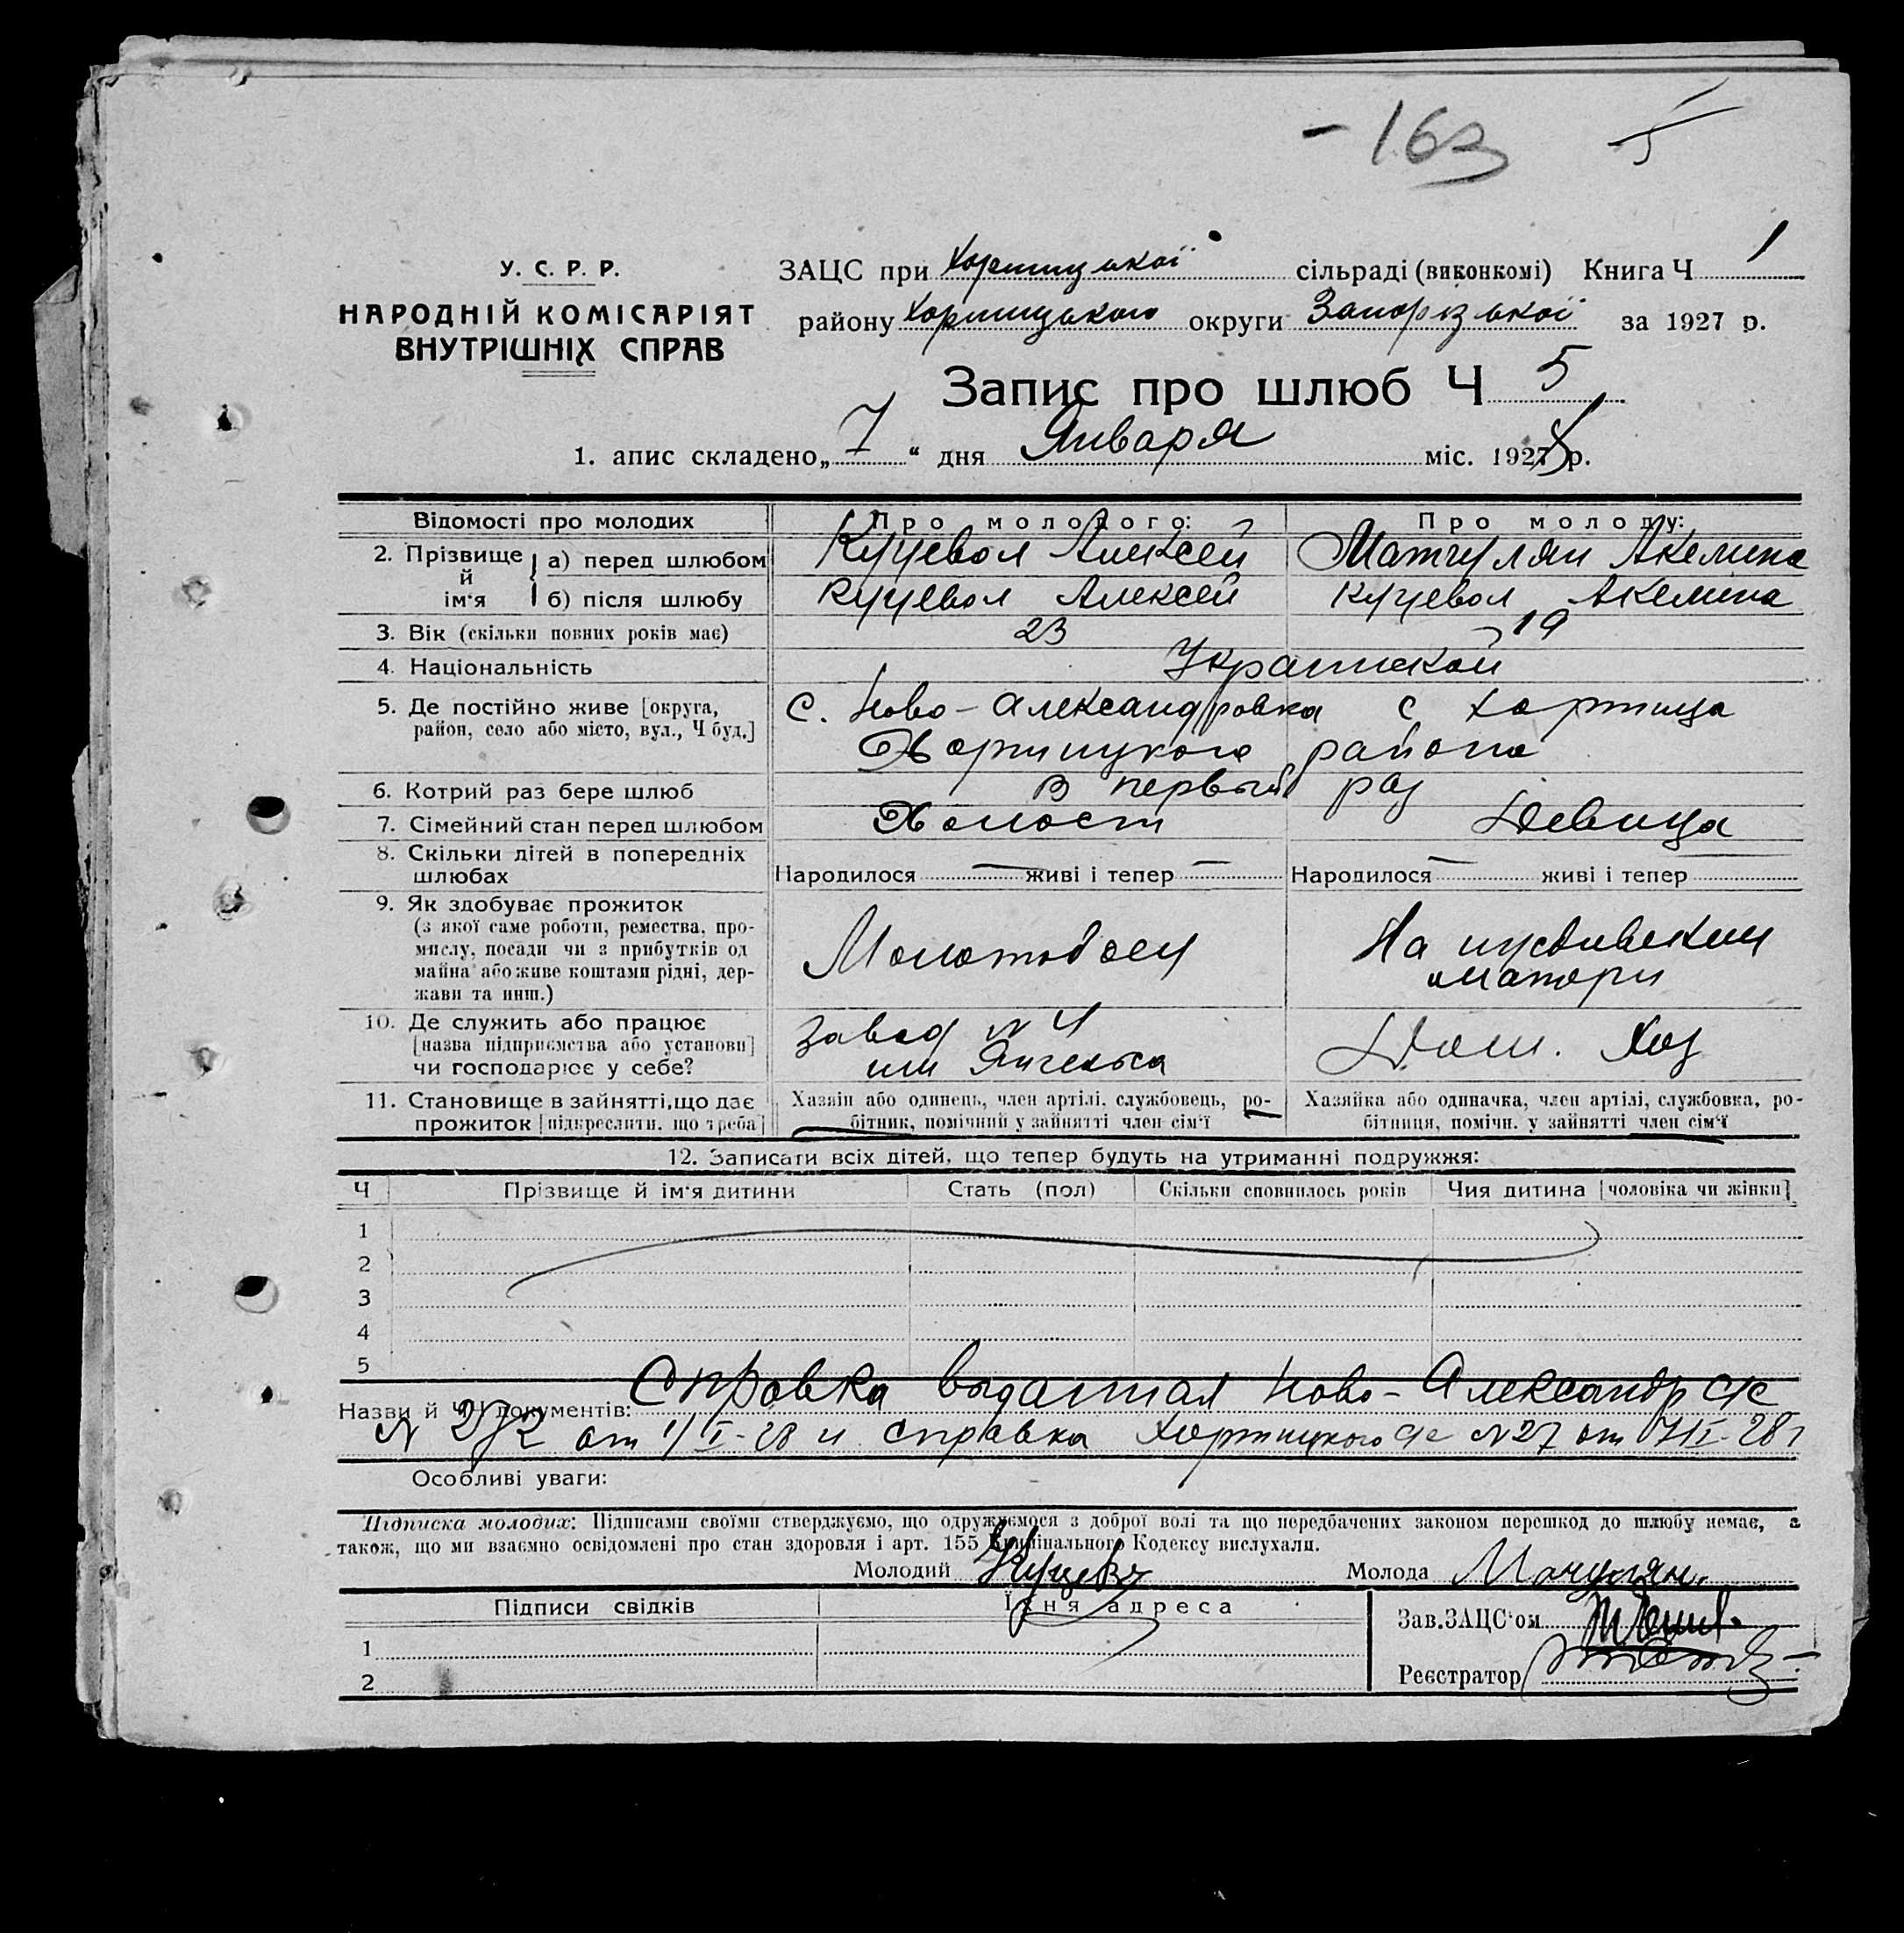 - 163 5
У. С. Р. Р.
НАРОДНІЙ КОМІСАРІЯТ
ВНУТРІШНІХ СПРАВ
ЗАЦС при Хортицької сільраді (виконкомі) Книга Ч 1
району Хортицького округи Запорізької за 1927 р.
Запис про шлюб Ч 5
1. апис складено „ 7 “ дня Января міс. 1928 р.
Відомості про молодих Про молодого: Про молоду:
2. Прізвище й ім'я а) перед шлюбом Куцевол Алексей Мачулян Акелина
б) після шлюбу Куцевол Алексей Куцевол Акелина
3. Вік (скільки повних років має) 23 19
4. Національність Украинской
5. Де постійно живе [округа, район, село або місто, вул., Ч буд.] с. Ново-Александровка с Хортица
Хортицкого района
6. Котрий раз бере шлюб В первый раз
7. Сімейний стан перед шлюбом Холост Девица
8. Скільки дітей в попередніх шлюбах Народилося — живі і тепер — Народилося — живі і тепер
9. Як здобуває прожиток
(з якої саме роботи, ремества, про-
мислу, посади чи з прибутків од
майна або живе коштами рідні, дер-
жави та инш.)
Молотобоец
На иждивении
матери
10. Де служить або працює
[назва підприємства або установи]
чи господарює у себе?
Завод № 4
Дом. Хоз
11. Становище в зайнятті, що дає
прожиток [підкреслити, що треба]
Хазяїн або одинець, член артілі, службовець, ро-
бітник, помічний у зайнятті член сім'ї
Хазяйка або одиначка, член артілі, службовка, ро-
бітниця, помічн. у зайнятті член сім'ї
12. Записати всіх дітей, що тепер будуть на утриманні подружжя:
Ч Прізвище й ім'я дитини Стать (пол) Скільки сповнилось років Чия дитина [чоловіка чи жінки]
1
2
3
4
5
Назви й ЧЧ документів: Справка выданная Ново-Александр с/с
N 272 от 1/I-28 и справка Хортицкого с/с N 27 от 7/I-28 г
Особливі уваги:
Підписка молодих: Підписами своїми стверджуємо, що одружуємося з доброї волі та що передбачених законом перешкод до шлюбу немає, а
також, що ми взаємно освідомлені про стан здоровля і арт. 155 Кримінального Кодексу вислухали.
Молодий Куцев Молода Мачулян.
Підписи свідків Їхня адреса
Зав. ЗАЦС'ом
1
Реєстратор
2